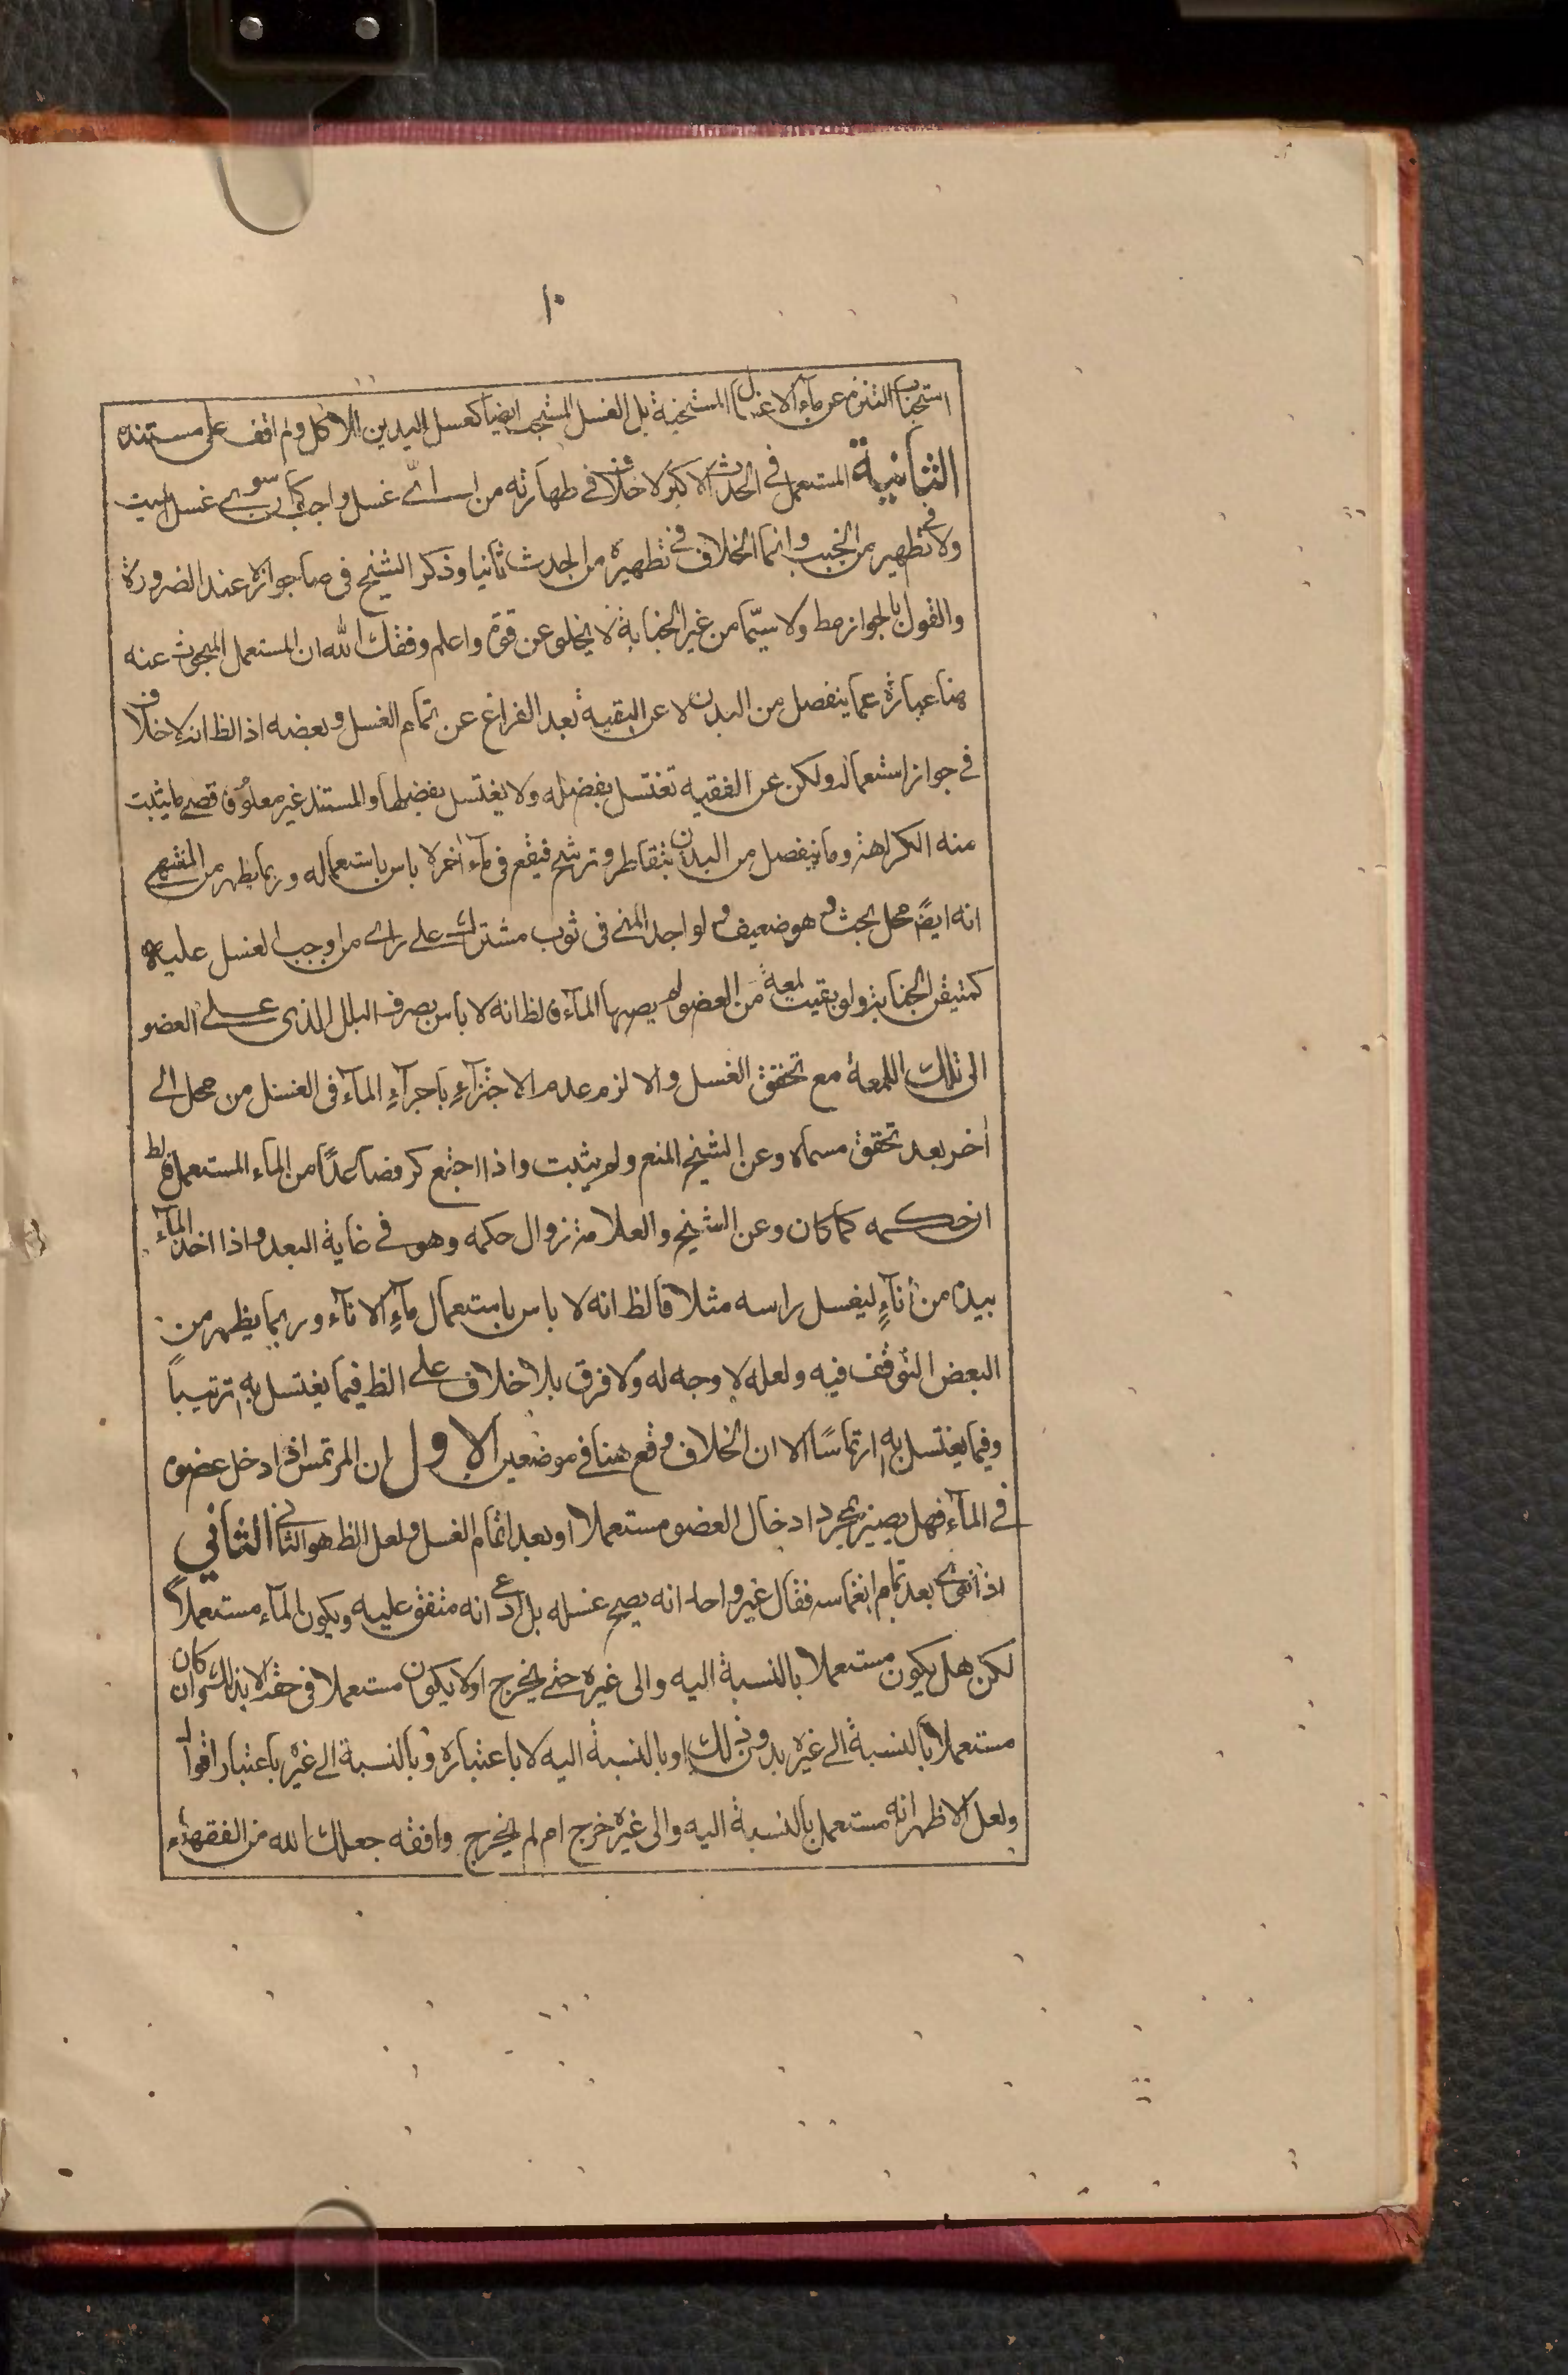 ١٠
استحباب التنزه عن ماء الاغسال المستحبة بل الغسل المستحب ايضا كغسل اليدين للاكل ولم اقف على مستنده
الثانية المستعمل في الحدث الاكبر لا خلاف في طهارته من اىّ غسل واجب كان سوى غسل الميت
ولا في تطهيره من الخبث وانما الخلاف في تطهيره من الحدث ثانيا وذكر الشيخ في صا جوازه عند الضرورة
والقول بالجواز مط ولا سيّما من غير الجنابة لا يخلو عن قوة واعلم وفقك الله ان المستعمل المبحوث عنه
هنا عبارة عما ينفصل من البدن لا عن البقية بعد الفراغ عن اتمام الغسل وبعضه اذ الظ انه لا خلاف
في جواز استعماله ولكن عن الفقيه تغتسل بفضله ولا يغتسل بفضلها والمستند غير معلوم قصى ما يثبت
منه الكراهة وما ينفصل من البدن بتقاطر وترشح فيقع في ماء اخر لا باس باستعماله وربما يظهر من المنتهى
انه ايضً محل بحث وهو ضعيف ولو اجد المني في ثوب مشترك على راى من اوجب الغسل عليه
كمتيقن الجنابة ولو بقيت لمعة من العضو لم يصبها الماء فالظ انه لا بأس بصرف البلل الذى على العضو
الى تلك اللمعة مع تحقق الغسل والا لزم عدم الاجتزآء باجرآء المآء في الغسل من محل الى
اخر بعد تحقق مسماه وعن الشيخ المنع ولم يثبت واذا اجتمع كر فصاعدًا من الماء المستعمل فالظ
ان حكمه كما كان وعن الشيخ والعلامة زوال حكمه وهو في غاية البعد واذا اخذ المآء
بيده من أنآءٍ ليغسل راسه مثلا فالظ انه لا باس باستعمال مآء الانآء وربما يظهر من
البعض التوقف فيه ولعله لا وجه له ولا فرق بلا خلاف على الظ فيما يغتسل به ترتيباً
وفيما يغتسل به ارتماسًا الا ان الخلاف وقع هنا في موضعين الاول ان المرتمس اذا ادخل عضوه
في المآء فهل يصير بمجرد ادخال العضو مستعملا او بعد اتمام الغسل ولعل الظ هو الثاني الثاني
اذا نوى بعد تمام انغماسه فقال غير واحد انه يصح غسله بل ادعى انه متفق عليه ويكون المآء مستعملاً
لكن هل يكون مستعملا بالنسبة اليه والى غيره حتى يخرج او لا يكون مستعملا في حقه الا بذلك وان كان
مستعملا بالنسبة الى غيره بدون ذلك او بالنسبة اليه لا باعتباره وبالنسبة الى غيره باعتبار اقوال
ولعل الاظهر انه مستعمل بالنسبة اليه والى غيره خرج ام لم يخرج وافقه جعلك الله من الفقهاء